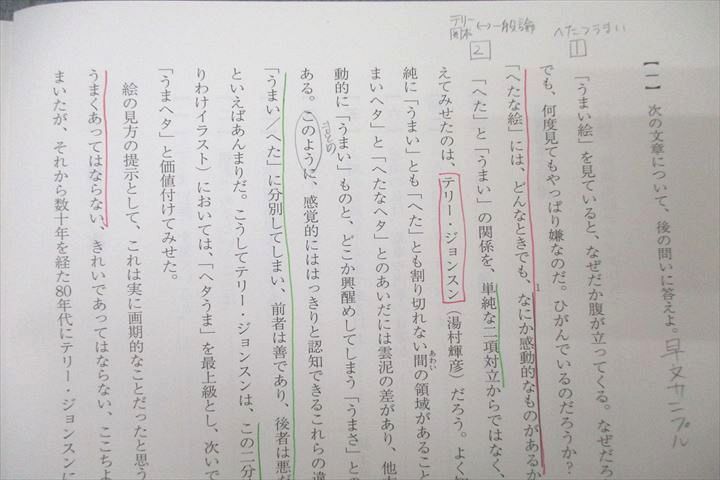 テリー ⟷ 一般論
2
へたつうまい
1
【一】 次の文章について、後の問いに答えよ。早文サンプル
「うまい絵」を見ていると、なぜだか腹が立ってくる。なぜだろ
でも、何度見てもやっぱり嫌なのだ。ひがんでいるのだろうか?
「へたな絵」には、どんなときでも、なにか感動的なものがあるか
1
「へた」と「うまい」の関係を、単純な二項対立からではなく、
えてみせたのは、テリー・ジョンスン(湯村輝彦)だろう。よく知
純に「うまい」とも「へた」とも割り切れない間の領域があること
あわい
まいヘタ」と「へたなヘタ」とのあいだには雲泥の差があり、他方
動的に「うまい」ものと、どこか興醒めしてしまう「うまさ」との
ある。このように、感覚的にははっきりと認知できるこれらの違
「うまい/へた」に分別してしまい、前者は善であり、後者は悪だ
といえばあんまりだ。こうしてテリー・ジョンスンは、この二分
りわけイラスト)においては、「ヘタうま」を最上級とし、次いで
「うまヘタ」と価値付けてみせた。
絵の見方の提示として、これは実に画期的なことだったと思う
うまくあってはならない、きれいであってはならない、ここちよ
まいたが、それから数十年を経た80年代にテリー・ジョンスンに